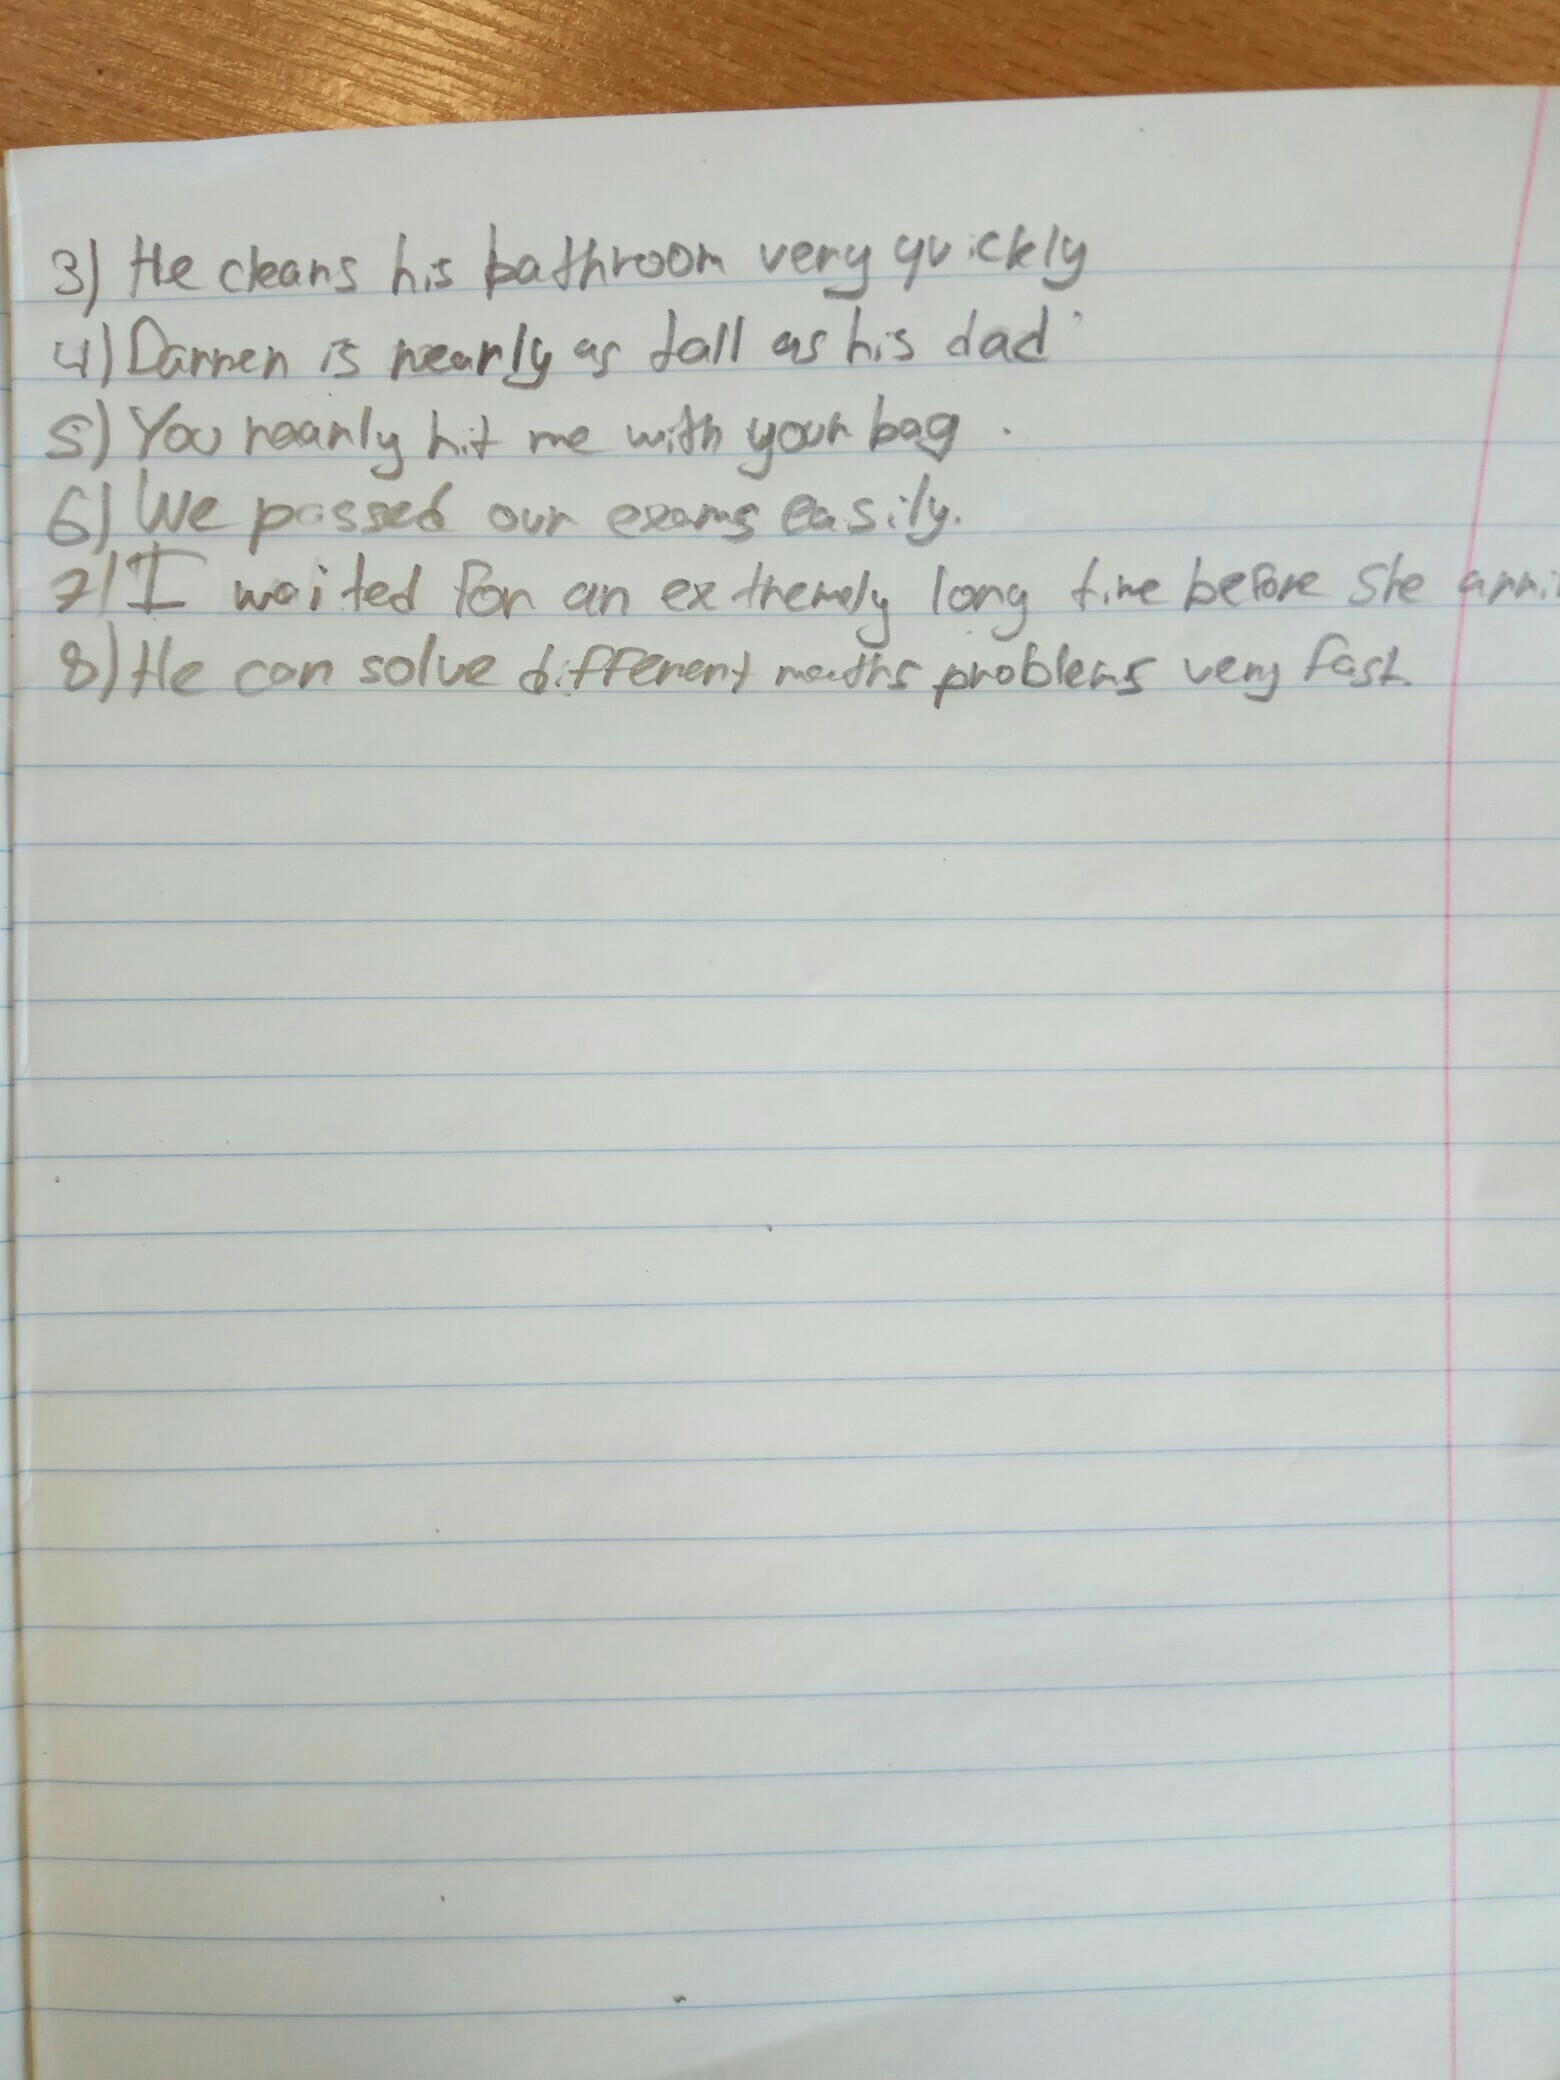 3) He cleans his bathroom very quickly
4) Darren is nearly as tall as his dad.
5) You nearly hit me with your bag.
6) We passed our exams easily.
7) I waited for an exthemely long time before she arri
8) He can solve different maths problems very fast.